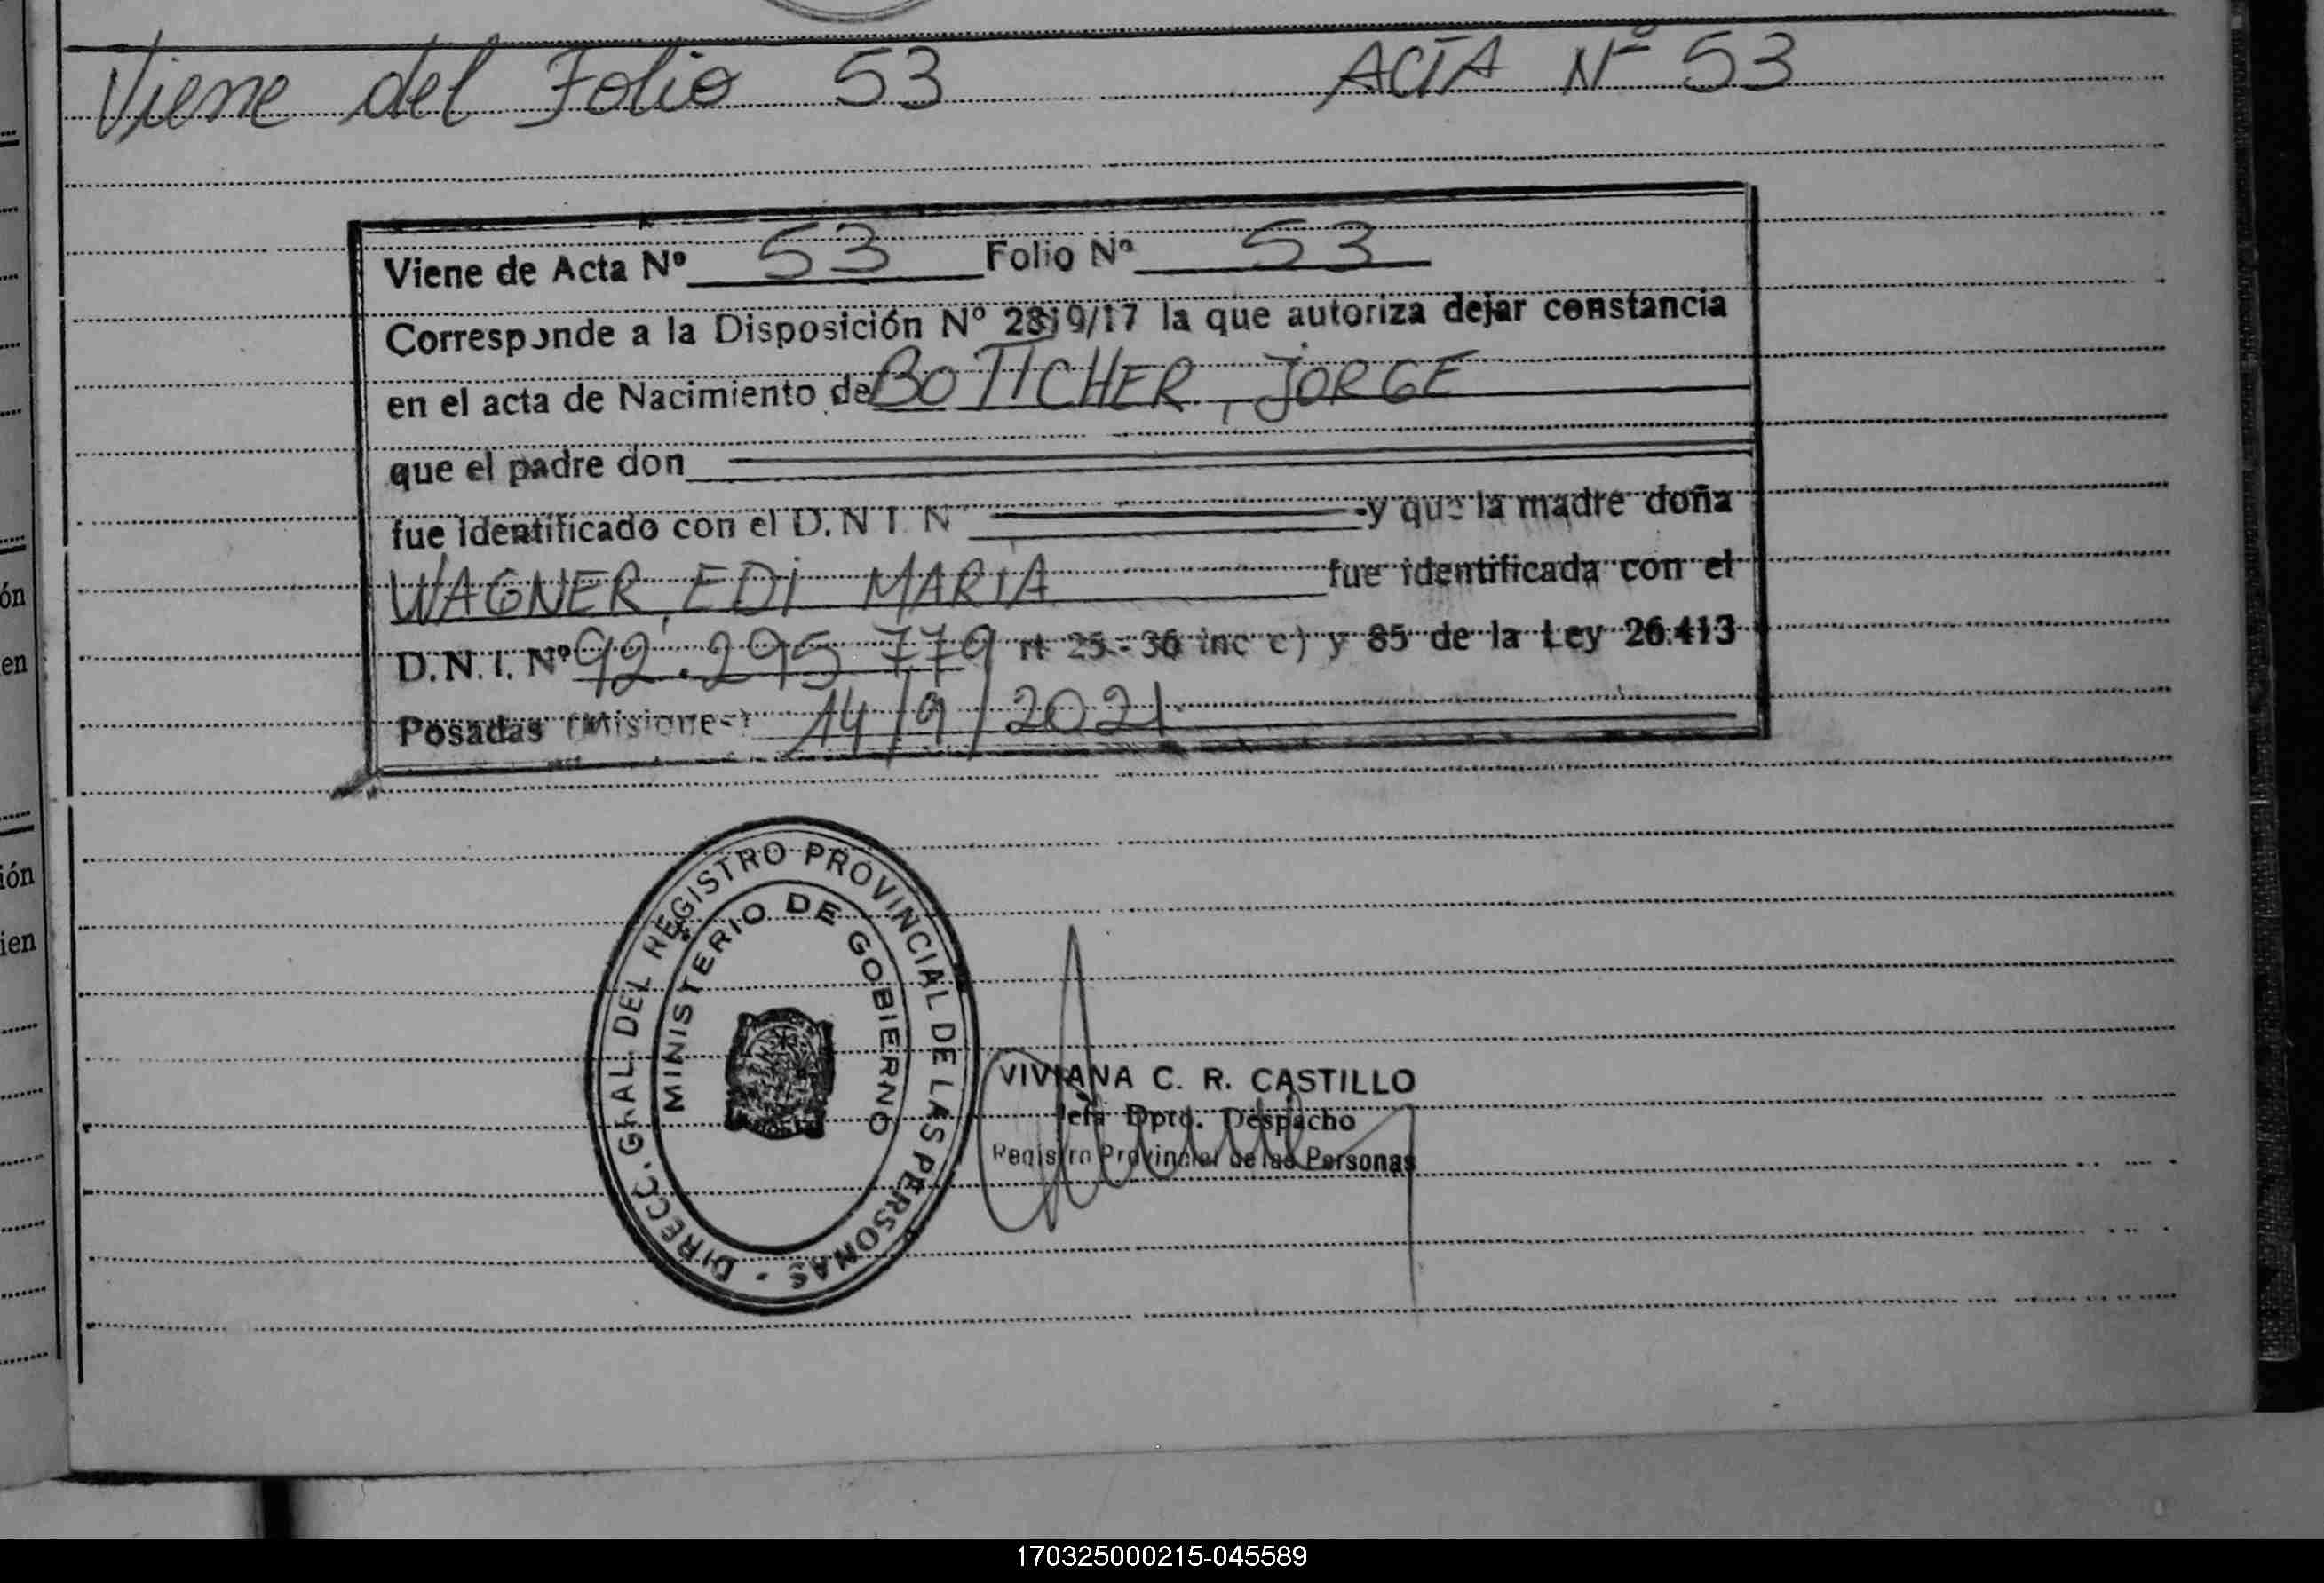 Viene del Folio 53 ACTA Nº 53
Viene de Acta Nº 53 Folio Nº 53
Corresponde a la Disposición Nº 2819/17 la que autoriza dejar constancia
en el acta de Nacimiento de BOTTCHER, JORGE
que el padre don
fue identificado con el D.N.I. Nº y que la madre doña
WAGNER, EDI MARIA fue identificada con el
D.N.I. Nº 92.295.779 rt 25 - 36 inc c) y 85 de la Ley 26.413
Posadas (Misiones) 14/9/2021
DIRECC. GRAL. DEL REGISTRO PROVINCIAL DE LAS PERSONAS -
MINISTERIO DE GOBIERNO
VIVIANA C. R. CASTILLO
Jefa Dpto. Despacho
Registro Provincial de las Personas
ón
en
ión
ien
170325000215-045589